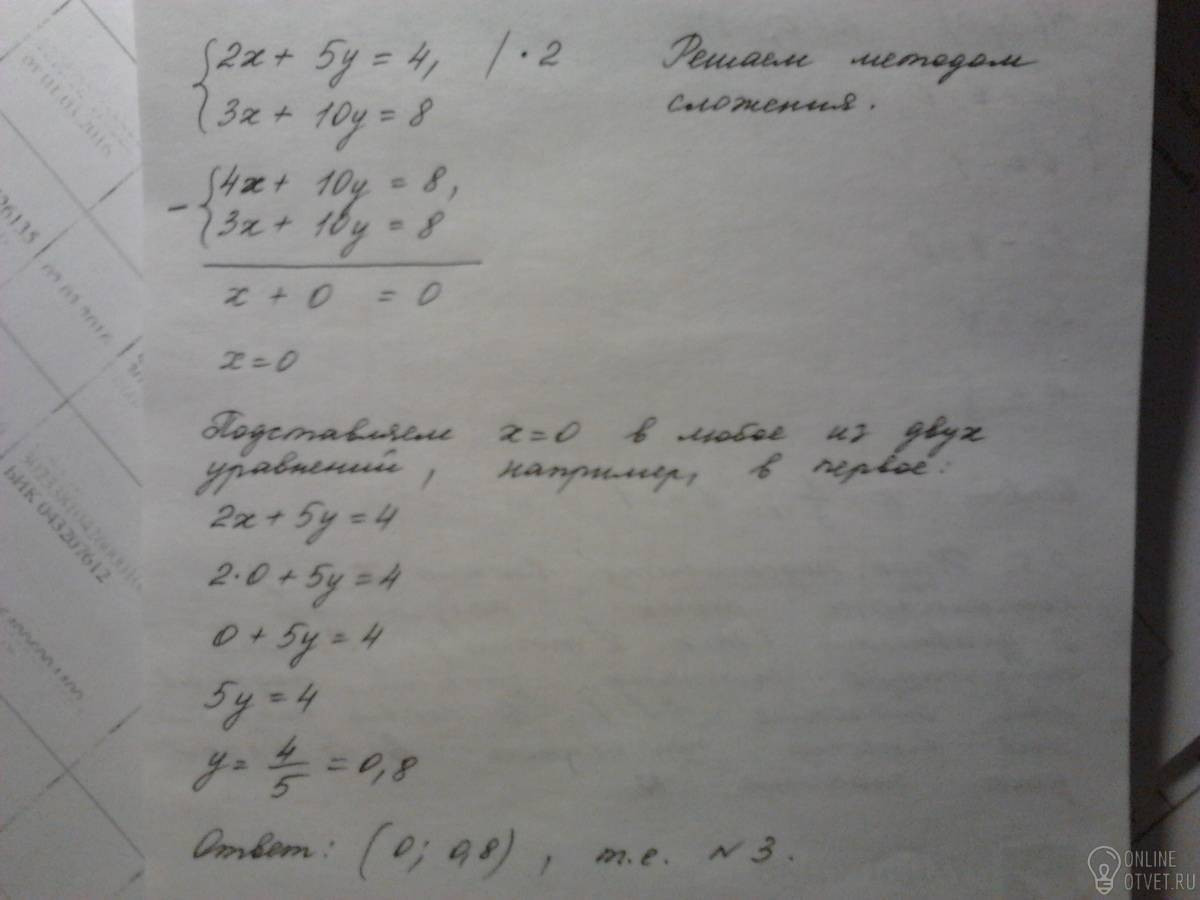 {2x + 5y = 4, | · 2
3x + 10y = 8
Решаем методом
сложения.
- {4x + 10y = 8,
3x + 10y = 8
x + 0 = 0
x = 0
Подставляем x=0 в любое из двух
уравнений, например, в первое:
2x + 5y = 4
2·0 + 5y = 4
0 + 5y = 4
5y = 4
y = 4/5 = 0,8
Ответ: (0; 0,8), т.е. №3.
26135
БИК 043207612
ONLINE
OTVET.RU